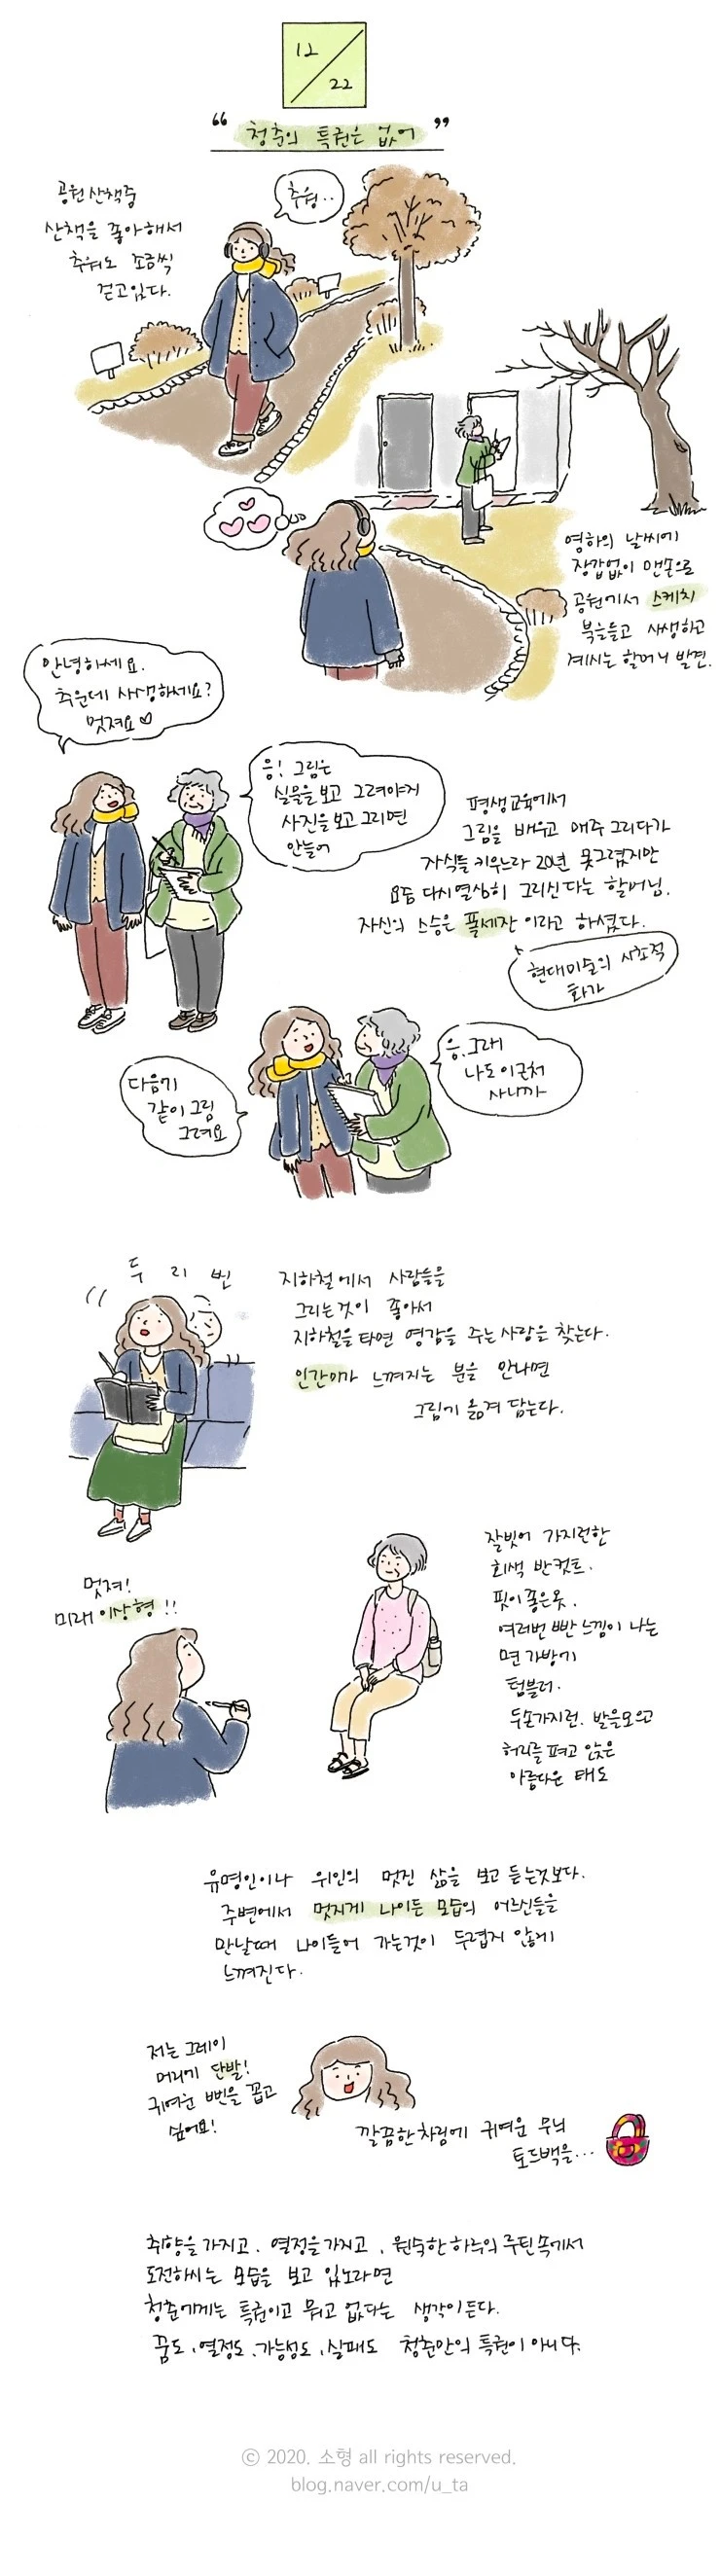 12
22
“ 청춘의 특권은 없어 ”
공원 산책중
산책을 좋아해서
추워도 조금씩
걷고있다.
추워..
영하의 날씨에
장갑없이 맨손으로
공원에서 스케치
북을들고 사생하고
계시는 할머니 발견.
안녕하세요.
추운데 사생하세요?
멋져요♡
응! 그림은
실물을 보고 그려야지
사진을 보고 그리면
안늘어
평생교육에서
그림을 배우고 매주 그리다가
자식들 키우느라 20년 못그렸지만
요즘 다시 열심히 그리신다는 할머님.
자신의 스승은 폴세잔 이라고 하셨다.
현대미술의 시초적
화가
다음에
같이 그림
그려요
응, 그래
나도 이근처
사니까
두 리 번
지하철에서 사람들을
그리는것이 좋아서
지하철을 타면 영감을 주는 사람을 찾는다.
인간미가 느껴지는 분을 만나면
그림에 옮겨 담는다.
멋져!
미래 이상형!!
잘빗어 가지런한
회색 반컷트.
핏이 좋은옷.
여러번 빤 느낌이 나는
면 가방에
텀블러.
두손가지런. 발을모으고
허리를 펴고 앉은
아름다운 태도
유명인이나 위인의 멋진 삶을 보고 듣는것보다.
주변에서 멋지게 나이든 모습의 어르신들을
만날때 나이들어 가는것이 두렵지 않게
느껴진다.
저는 그레이
머리에 단발!
귀여운 삔을 꼽고
싶어요!
깔끔한차림에 귀여운 무늬
토드백을...
취향을 가지고. 열정을 가지고. 원숙한 하루의 루틴 속에서
도전하시는 모습을 보고 있노라면
청춘에게는 특권이고 뭐고 없다는 생각이든다.
꿈도, 열정도, 가능성도, 실패도 청춘만의 특권이 아니다.
© 2020. 소형 all rights reserved.
blog.naver.com/u_ta